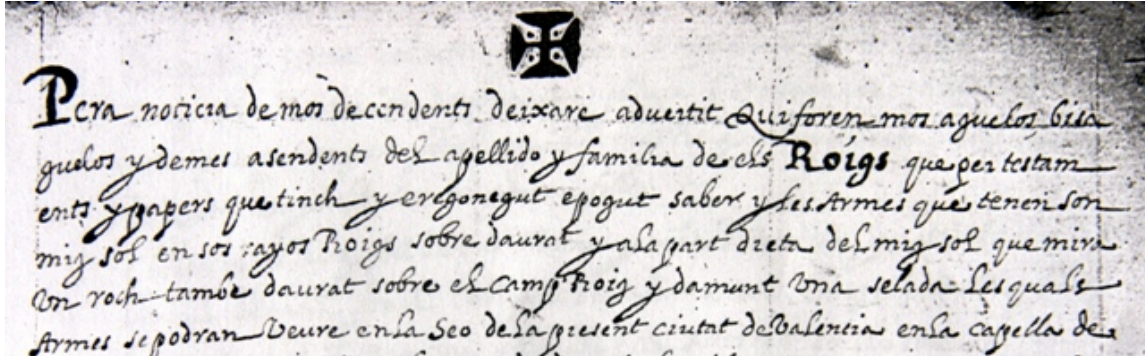 Pera noticia de mos decendents deixare advertit Qui foren mos aguelos, bisa
guelos y demes asendents del apellido y familia de els Roigs que per testam
ents y papers que tinch y eregonegut epogut saber y les Armes que tenen son
mig sol en sos rayos Roigs sobre daurat y ala part dreta del mig sol que mira
Un roch tambe daurat sobre el camp Roig y damunt Una selada Les quals
Armes se podran Veure en la Seo de la present ciutat de Valencia en la capella de